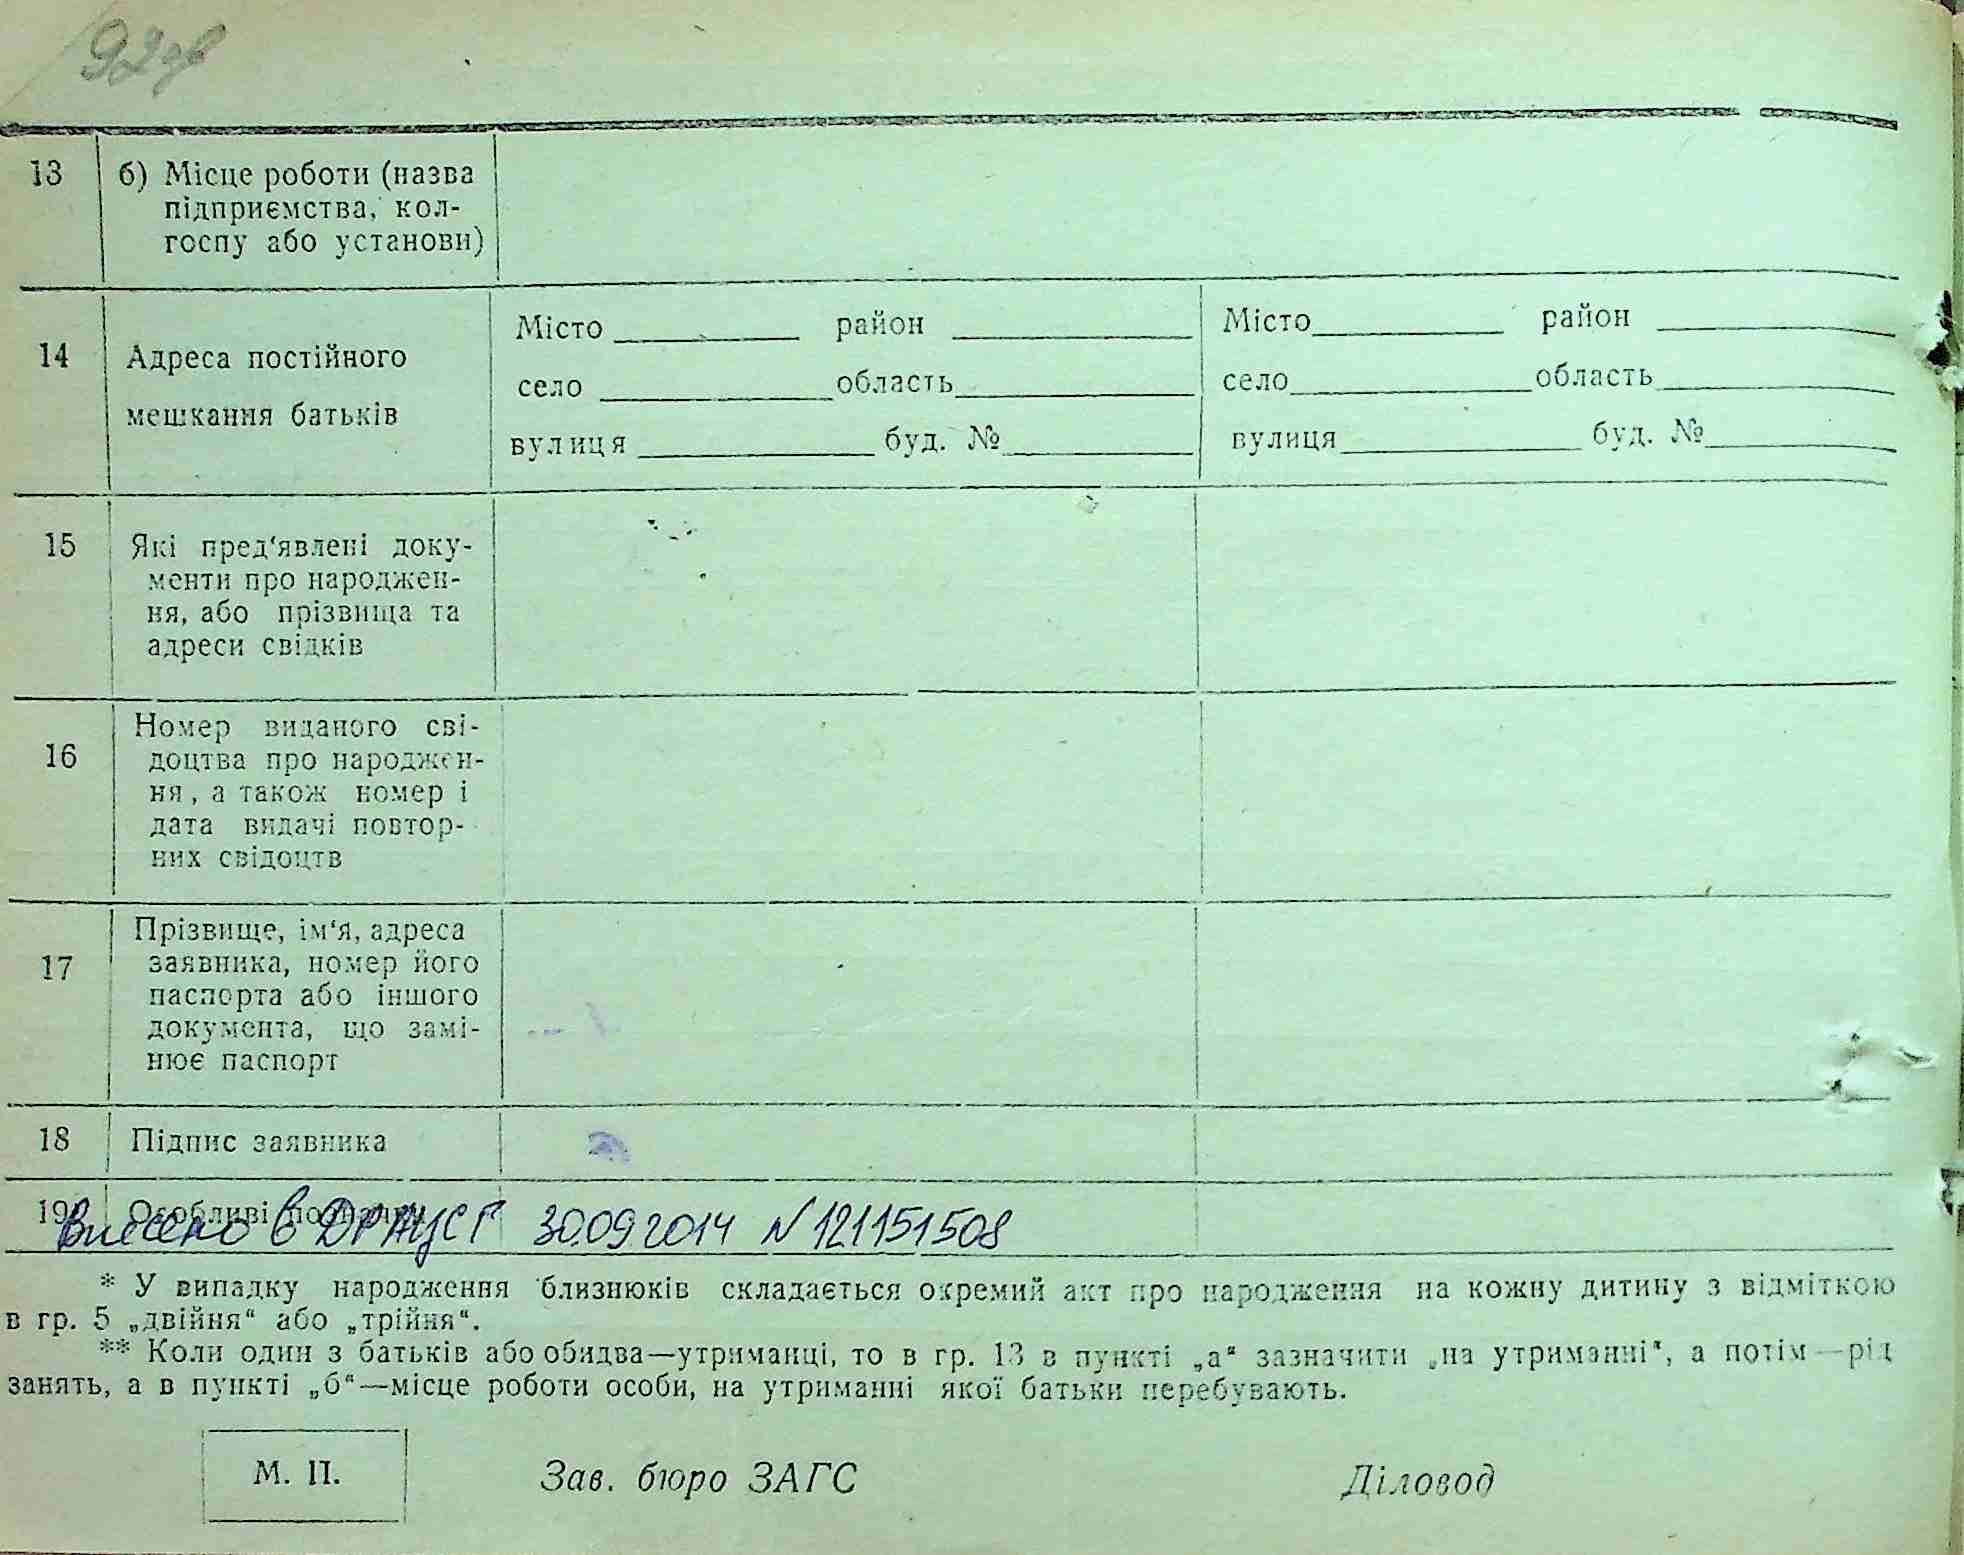 92зв
13 б) Місце роботи (назва
підприємства, кол-
госпу або установи)
14 Адреса постійного
мешкання батьків
Місто район
село область
вулиця буд. №
Місто район
село область
вулиця буд. №
15 Які пред'явлені доку-
менти про народжен-
ня, або прізвища та
адреси свідків
16 Номер виданого сві-
доцтва про народжен-
ня, а також номер і
дата видачі повтор-
них свідоцтв
17 Прізвище, ім'я, адреса
заявника, номер його
паспорта або іншого
документа, що замі-
нює паспорт
18 Підпис заявника
19 Особливі
Внесено в ДРАЦСГ 30.09.2014 N121151508
* У випадку народження близнюків складається окремий акт про народження на кожну дитину з відміткою
в гр. 5 „двійня“ або „трійня“.
** Коли один з батьків або обидва—утриманці, то в гр. 13 в пункті „а“ зазначити „на утриманні“, а потім—рід
занять, а в пункті „б“—місце роботи особи, на утриманні якої батьки перебувають.
М. П.
Зав. бюро ЗАГС
Діловод